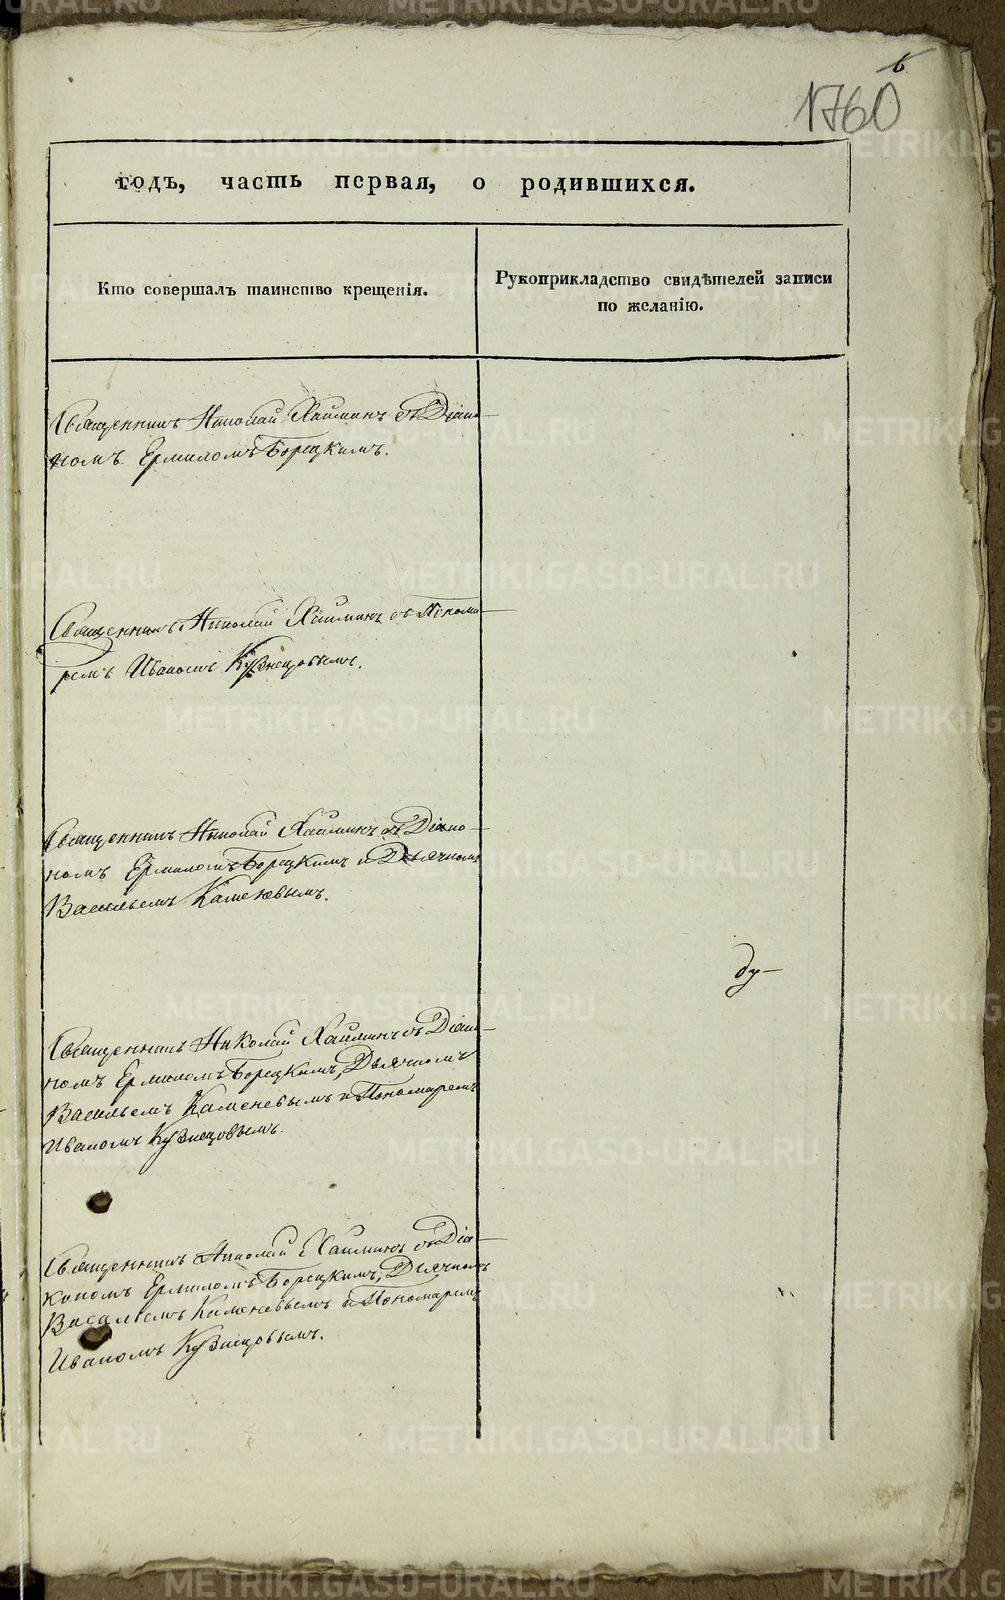 6
1760
годъ, часть первая, о родившихся.
Кто совершалъ таинство крещенія.
Рукоприкладство свидѣтелей записи
по желанію.
Священникъ Николай Хайминъ съ Діако-
номъ Ермиломъ Борецкимъ.
Священникъ Николай Хайминъ съ Понома-
ремъ Иваномъ Кузнецовымъ.
Священникъ Николай Хайминъ съ Діако-
номъ Ермиломъ Борецкимъ и Дьячкомъ
Васильемъ Каменевымъ.
ду-
Священникъ Николай Хайминъ съ Діако-
номъ Ермиломъ Борецкимъ, Дьячкомъ
Васильемъ Каменевымъ и Пономаремъ
Иваномъ Кузнецовымъ.
Священникъ Николай Хайминъ съ Діа-
кономъ Ермиломъ Борецкимъ, Дьячкомъ
Васильемъ Каменевымъ и Пономаремъ
Иваномъ Кузнецовымъ.
METRIKI.GASO-URAL.RU